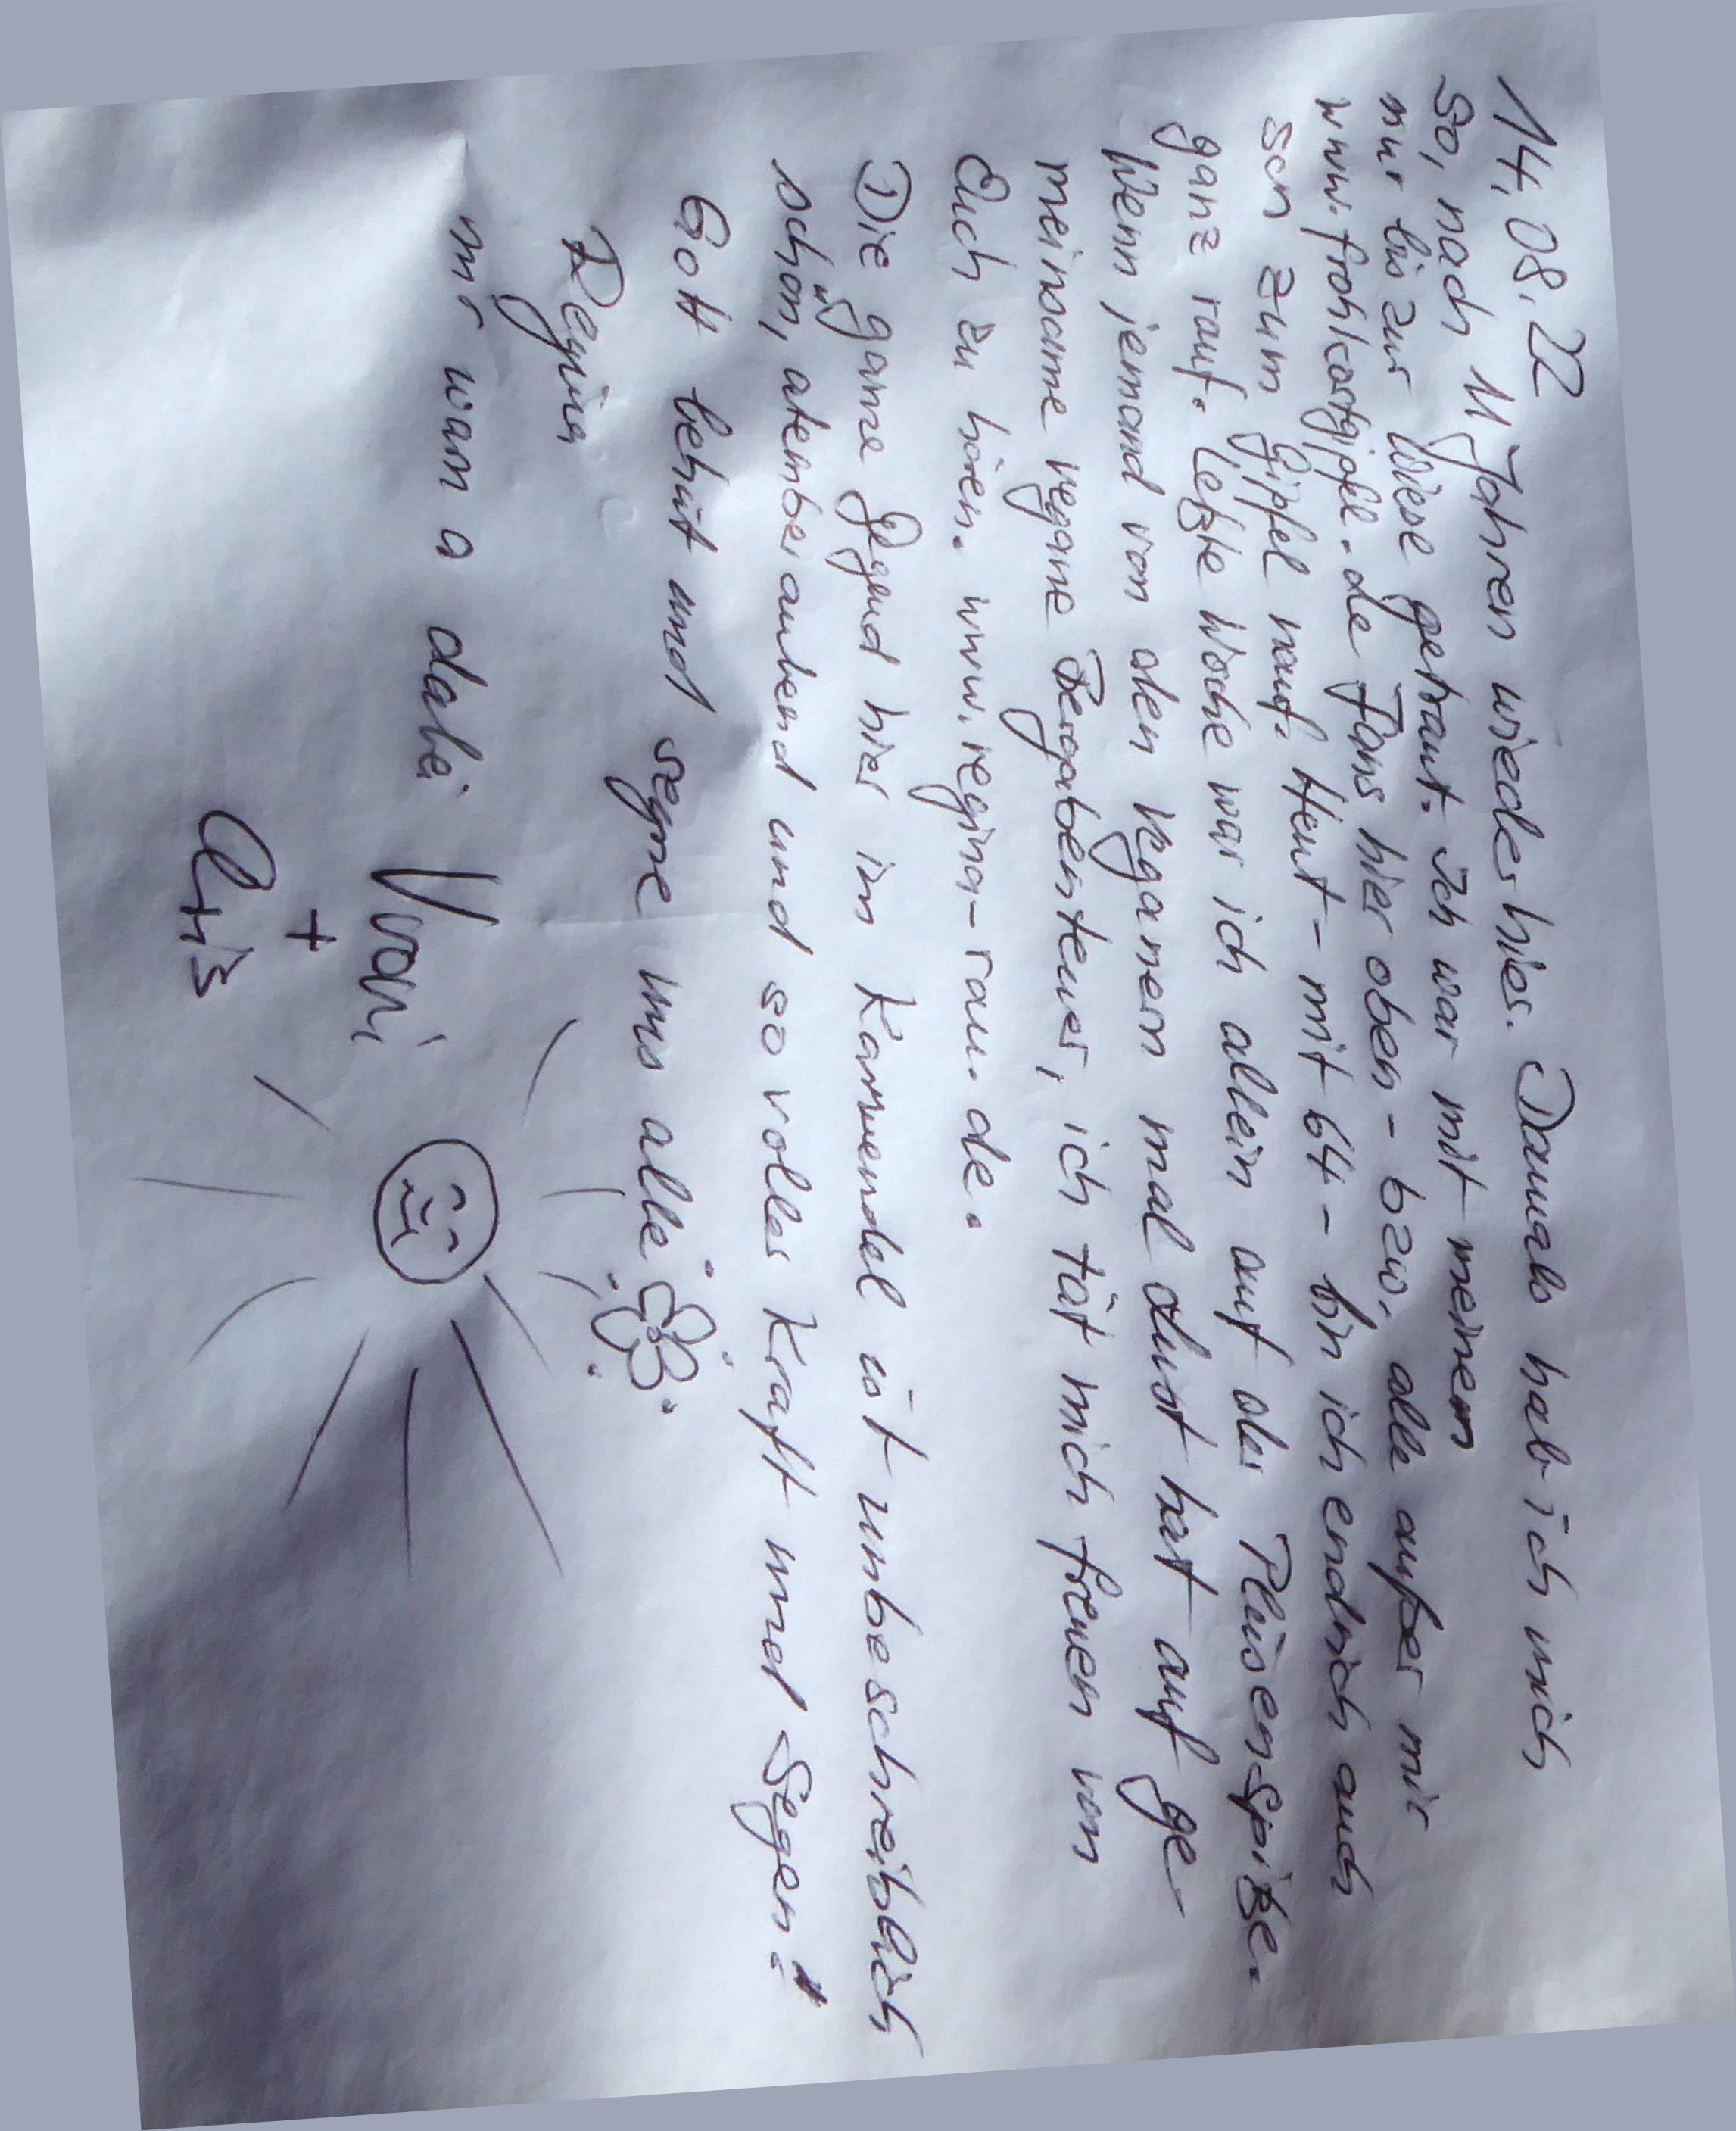 14.08.22
So, nach 11 Jahren wieder hier. Damals hab ich mich
nur bis zur Wiese getraut. Ich war mit meinem
www.frohkostgipfel.de Fans hier oben - bzw. alle außer mir
sen zum Gipfel nauf. Heut - mit 64 - bin ich endlich auch
ganz rauf. Letzte Woche war ich allein auf der Pleisenspitze.
Wenn jemand von den Veganern mal Lust hat auf ge-
meinsame vegane Bergabenteuer, ich tät mich freuen von
Euch zu hören. www.regina-rau.de.
Die ganze Gegend hier im Karwendel ist unbeschreiblich
schön, atemberaubend und so voller Kraft und Segen!"
Gott behüt und segne uns alle
Regina
mr warn a dabei Vroni
+
Chris